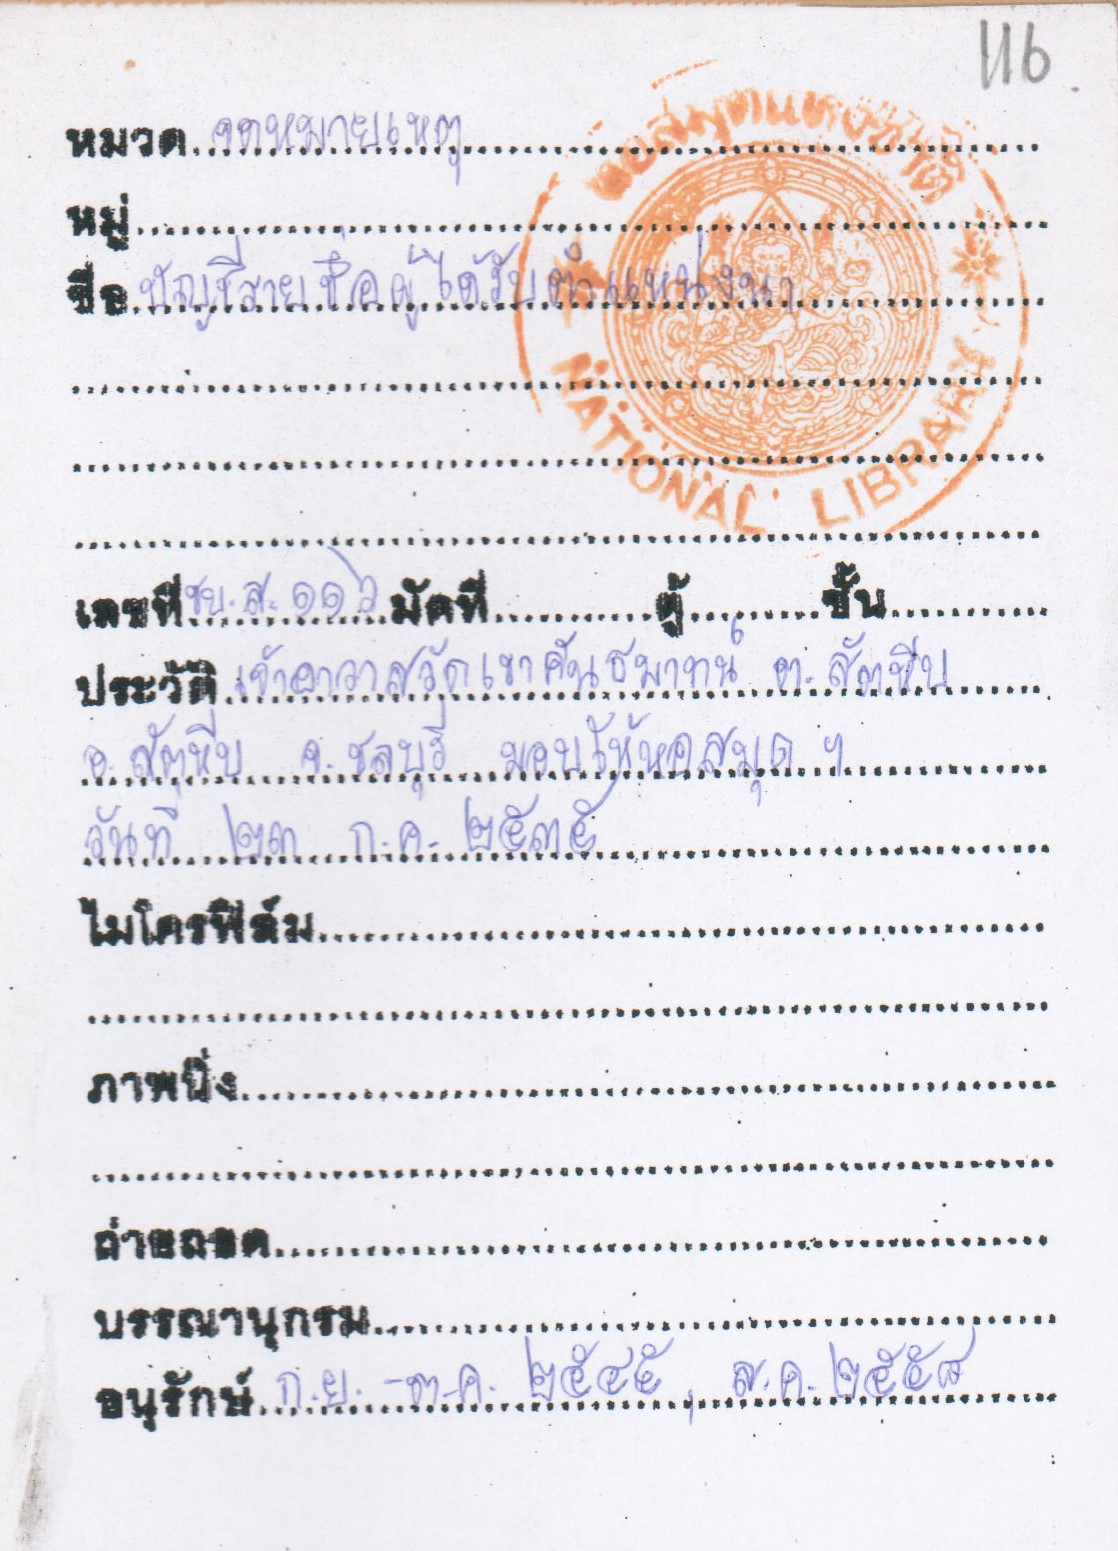 116
หมวด จดหมายเหตุ
หมู่
ชื่อ บัญชีรายชื่อผู้ได้รับตำแหน่งนา
หอสมุดแห่งชาติ
NATIONAL LIBRARY
เลขที่ ชบ.ส. ๑๑๖ มัดที่ ตู้ ชั้น
ประวัติ เจ้าอาวาสวัดเขาคันธมาทน์ ต. สัตหีบ
อ. สัตหีบ จ. ชลบุรี มอบให้หอสมุด ฯ
วันที่ ๒๓ ก.ค. ๒๕๓๕
ไมโครฟิล์ม
ภาพนิ่ง
ถ่ายถอด
บรรณานุกรม
อนุรักษ์ ก.ย. - ต.ค. ๒๕๔๕, ส.ค. ๒๕๕๘